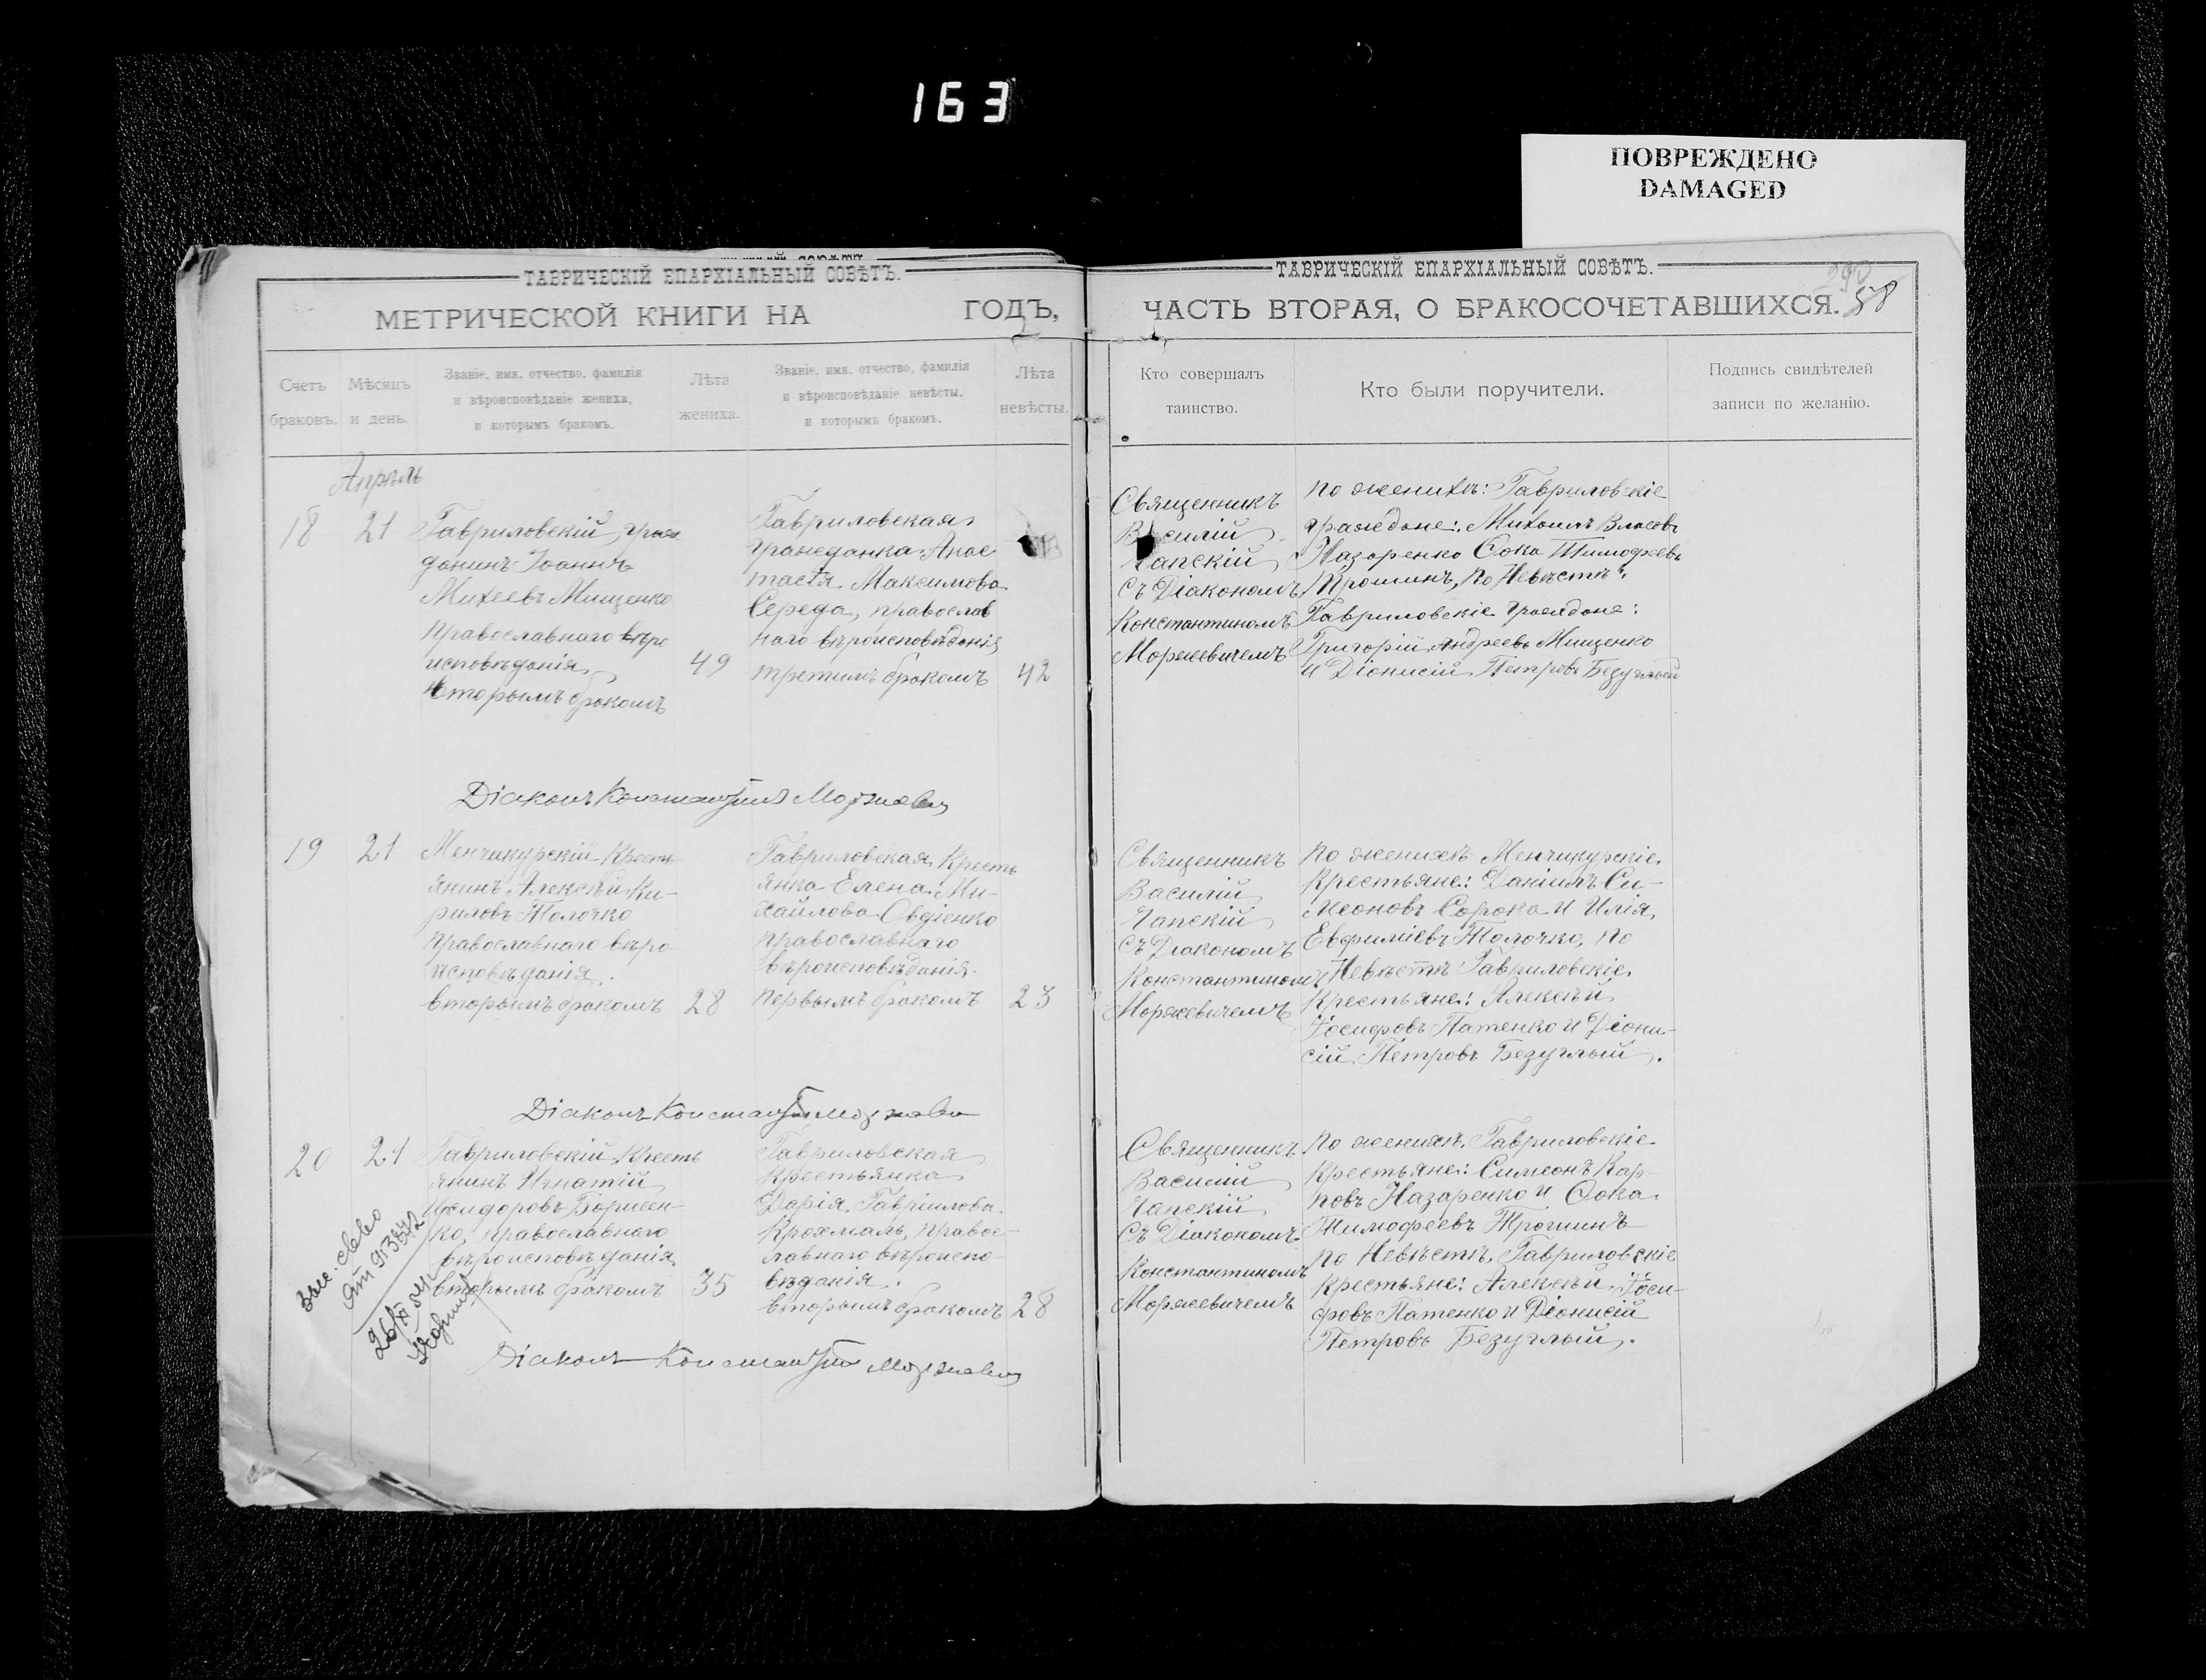 163
ПОВРЕЖДЕНО
DAMAGED
ТАВРИЧЕСКІЙ ЕПАРХІАЛЬНЫЙ СОВѢТЪ.
МЕТРИЧЕСКОЙ КНИГИ НА ГОДЪ,
Счетъ
браковъ.
Мѣсяцъ
и день.
Званіе, имя, отчество, фамилія
и вѣроисповѣданіе жениха,
и которымъ бракомъ.
Лѣта
жениха.
Званіе, имя, отчество, фамилія
и вѣроисповѣданіе невѣсты,
и которымъ бракомъ.
Лѣта
невѣсты.
Апрѣль
18
21
Гавриловскій граж
данинъ Іоаннъ
Михеевъ Мищенко
православнаго вѣро
исповѣданія,
вторымъ бракомъ
49
Гавриловская
гражданка Анас
тасія Максимова
Середа, православ
наго вѣроисповѣданія
третимъ бракомъ
42
Діаконъ Константинъ
19
21
Менчикурскій Кресть-
янинъ Алексѣй Ки-
риловъ Толочко
православнаго вѣро
исповѣданія.
вторымъ бракомъ
28
Гавриловская Кресть
янка Елена Ми-
хайлова Овдіенко
православнаго
вѣроисповѣданія.
первымъ бракомъ
23
Діаконъ Константинъ
20
21
Гавриловскій Кресть
янинъ Игнатій
Исидоровъ Борисен-
ко, православнаго
вѣроисповѣданія
вторымъ бракомъ
35
Гавриловская
Крестьянка
Дарія Гавріилова
Крохмаль, правос-
лавнаго вѣроиспо-
вѣданія.
вторымъ бракомъ
28
Діаконъ Константинъ
ТАВРИЧЕСКІЙ ЕПАРХІАЛЬНЫЙ СОВѢТЪ.
ЧАСТЬ ВТОРАЯ, О БРАКОСОЧЕТАВШИХСЯ.
58
Кто совершалъ
таинство.
Кто были поручители.
Подпись свидѣтелей
записи по желанію.
Священникъ
Василій
Чапскій
съ Діакономъ
Константиномъ
Моржевичемъ
по женихѣ: Гавриловскіе
граждане: Михаилъ Власовъ
Назаренко Фока Тимофеевъ
Трошинъ, по Невѣстѣ:
Гавриловскіе граждане:
Григорій Андреевъ Мищенко
и Діонисій Петровъ Безуглый
Священникъ
Василій
Чапскій
съ Діакономъ
Константиномъ
Моржевичемъ
по женихѣ Менчикурскіе
Крестьяне: Даніилъ Си-
меоновъ Сорока и Илія
Евфиміевъ Толочко, по
Невѣстѣ Гавриловскіе
Крестьяне: Алексѣй
Іосифовъ Патенко и Діони-
сій Петровъ Безуглый.
Священникъ
Василій
Чапскій
съ Діакономъ
Константиномъ
Моржевичемъ
по женихѣ Гавриловскіе
Крестьяне: Симеонъ Кар-
повъ Назаренко и Фока
Тимофеевъ Трошинъ
по Невѣстѣ Гавриловскіе
Крестьяне: Алексѣй Іоси-
фовъ Патенко и Діонисій
Петровъ Безуглый.